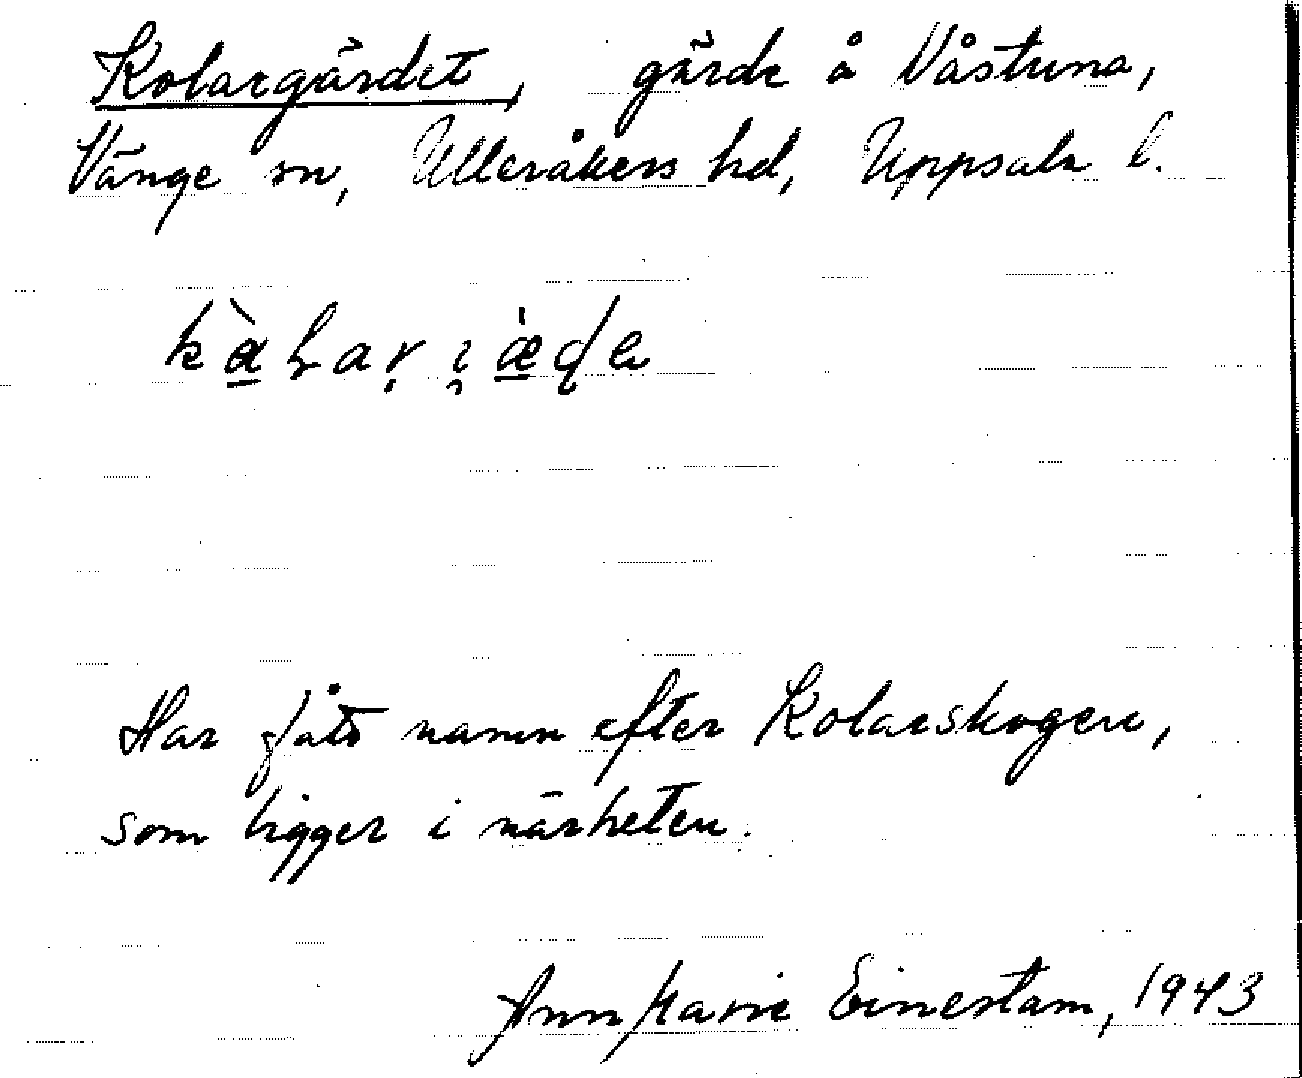 Kolargärdet, gärde å Våstuna,
Vänge sn, Ulleråkers hd, Uppsala l.
Har fått namn efter Kolarskogen,
som ligger i närheten.
Ann Marie Einestam, 1943